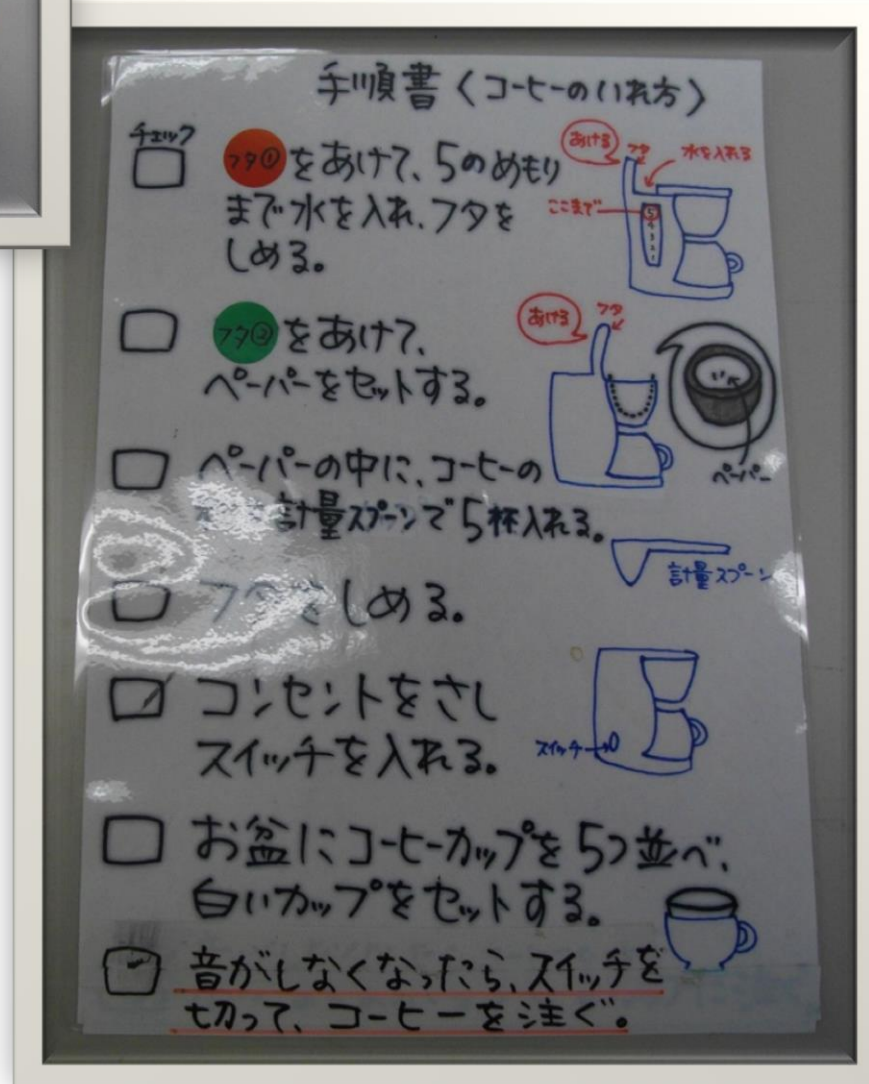 手順書〈コーヒーのいれ方〉
チェック
フタ①をあけて、5のめもり
まで水を入れ、フタを
しめる。
あける
フタ
水を入れる
ここまで
5
フタ②をあけて、
ペーパーをセットする。
あける
フタ
ペーパー
ペーパーの中に、コーヒーの
計量スプーンで5杯入れる。
計量スプーン
フタをしめる。
コンセントをさし
スイッチを入れる。
スイッチ
お盆にコーヒーカップを5つ並べ、
白いカップをセットする。
音がしなくなったら、スイッチを
切って、コーヒーを注ぐ。